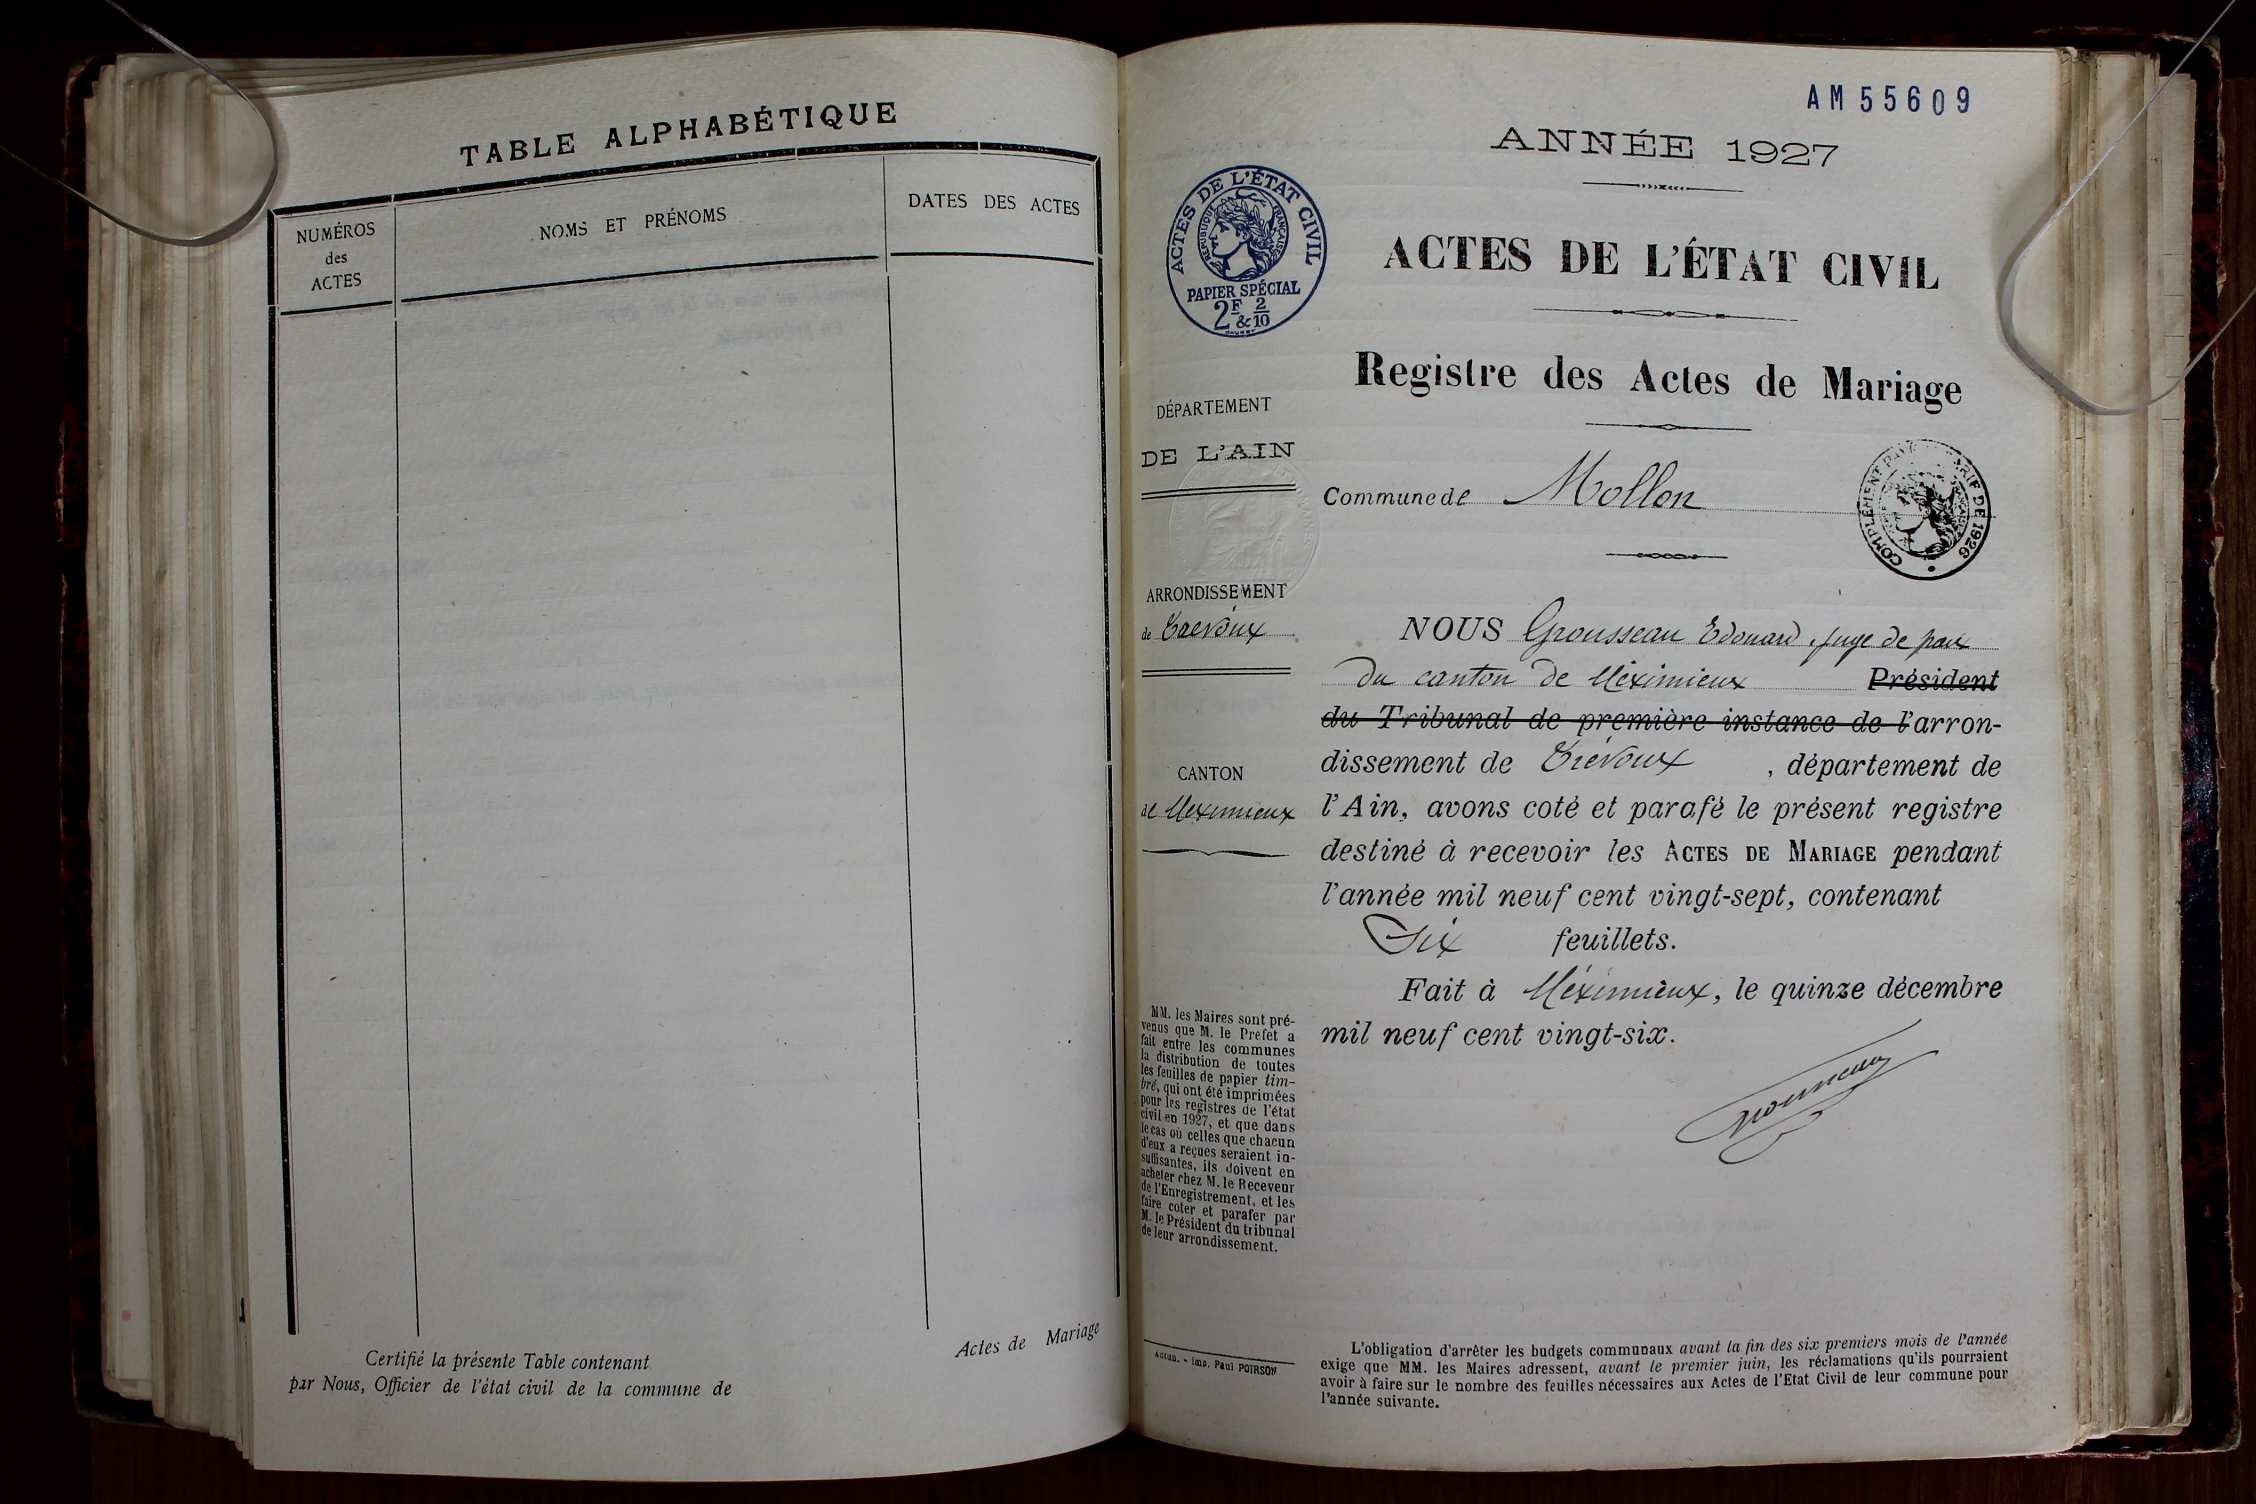 TABLE ALPHABÉTIQUE
NUMÉROS
des
ACTES
NOMS ET PRÉNOMS
DATES DES ACTES
Certifié la présente Table contenant
par Nous, Officier de l'état civil de la commune de
Actes de Mariage
AM 55609
ANNÉE 1927
ACTES DE L'ÉTAT CIVIL
RÉPUBLIQUE FRANÇAISE
PAPIER SPÉCIAL
2F & 2/10
ACTES DE L'ÉTAT CIVIL
Registre des Actes de Mariage
DÉPARTEMENT
DE L'AIN
Commune de Mollon
COMPLÉMENT PAYÉ TARIF DE 1926
ARRONDISSEMENT
de Trévoux
CANTON
de Meximieux
NOUS Grousseau Edouard, juge de paix
du canton de Méximieux Président
du Tribunal de première instance de l'arron-
dissement de Trévoux, département de
l'Ain, avons coté et parafé le présent registre
destiné à recevoir les ACTES DE MARIAGE pendant
l'année mil neuf cent vingt-sept, contenant
Six feuillets.
Fait à Méximieux, le quinze décembre
mil neuf cent vingt-six.
MM. les Maires sont pré-
venus que M. le Préfet a
fait entre les communes
la distribution de toutes
les feuilles de papier tim-
bré, qui ont été imprimées
pour les registres de l'état
civil en 1927, et que dans
le cas où celles que chacun
d'eux a reçues seraient in-
suffisantes, ils doivent en
acheter chez M. le Receveur
de l'Enregistrement, et les
faire coter et parafer par
M. le Président du tribunal
de leur arrondissement.
Imp. Paul POIRSON
L'obligation d'arrêter les budgets communaux avant la fin des six premiers mois de l'année
exige que MM. les Maires adressent, avant le premier juin, les réclamations qu'ils pourraient
avoir à faire sur le nombre des feuilles nécessaires aux Actes de l'Etat Civil de leur commune pour
l'année suivante.